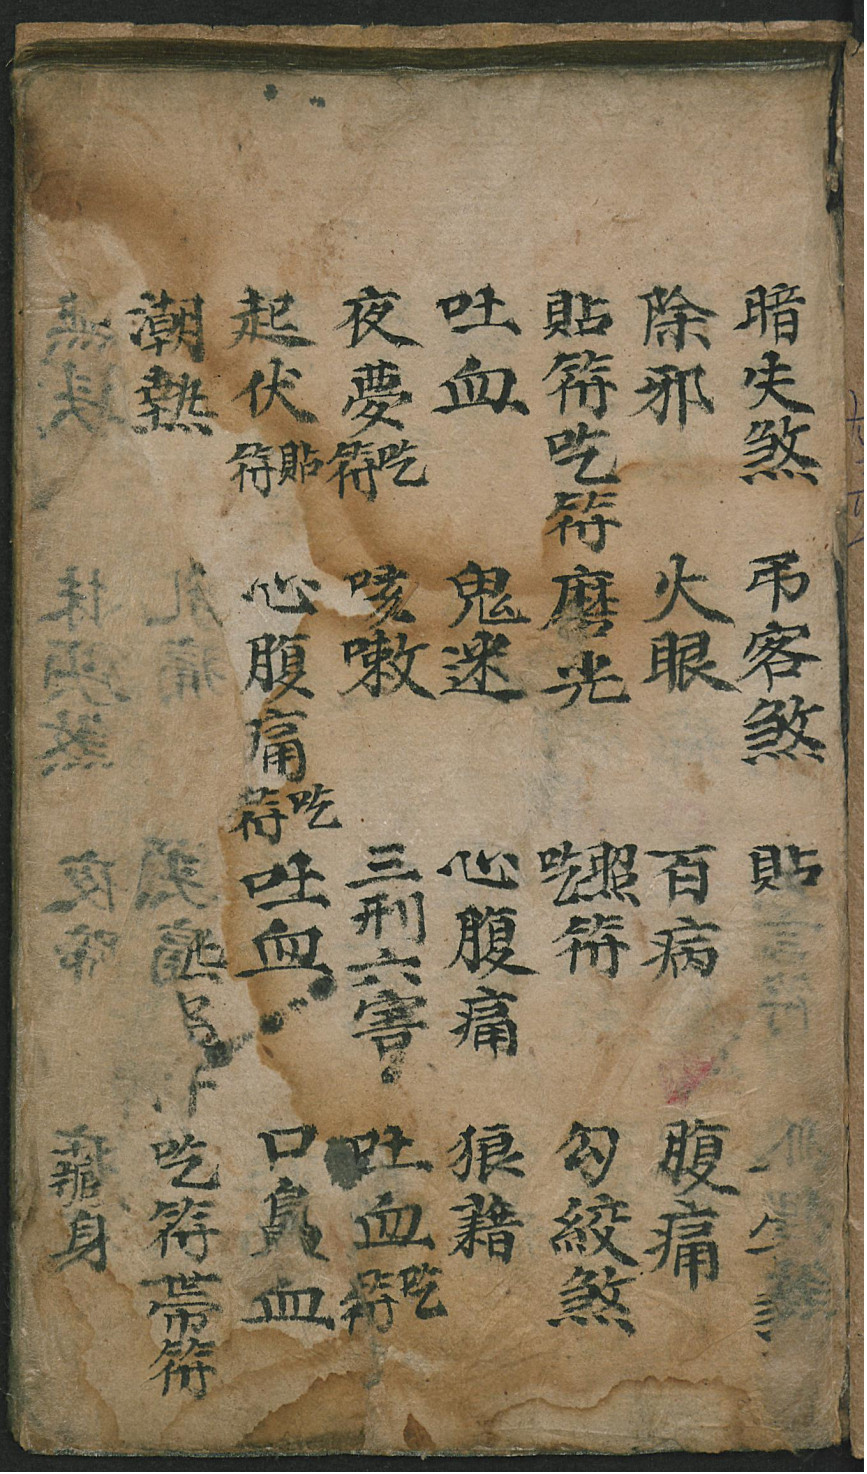 暗失煞 弔客煞 貼
除邪 火眼 百病 腹痛
貼符吃符磨光 照吃符 勾絞煞
吐血 鬼迷 心腹痛 狼藉
夜夢吃符 咳嗽 三刑六害 吐血吃符
起伏貼符 心腹痛吃符 吐血 口鼻血
潮熱 吃符帶符
身